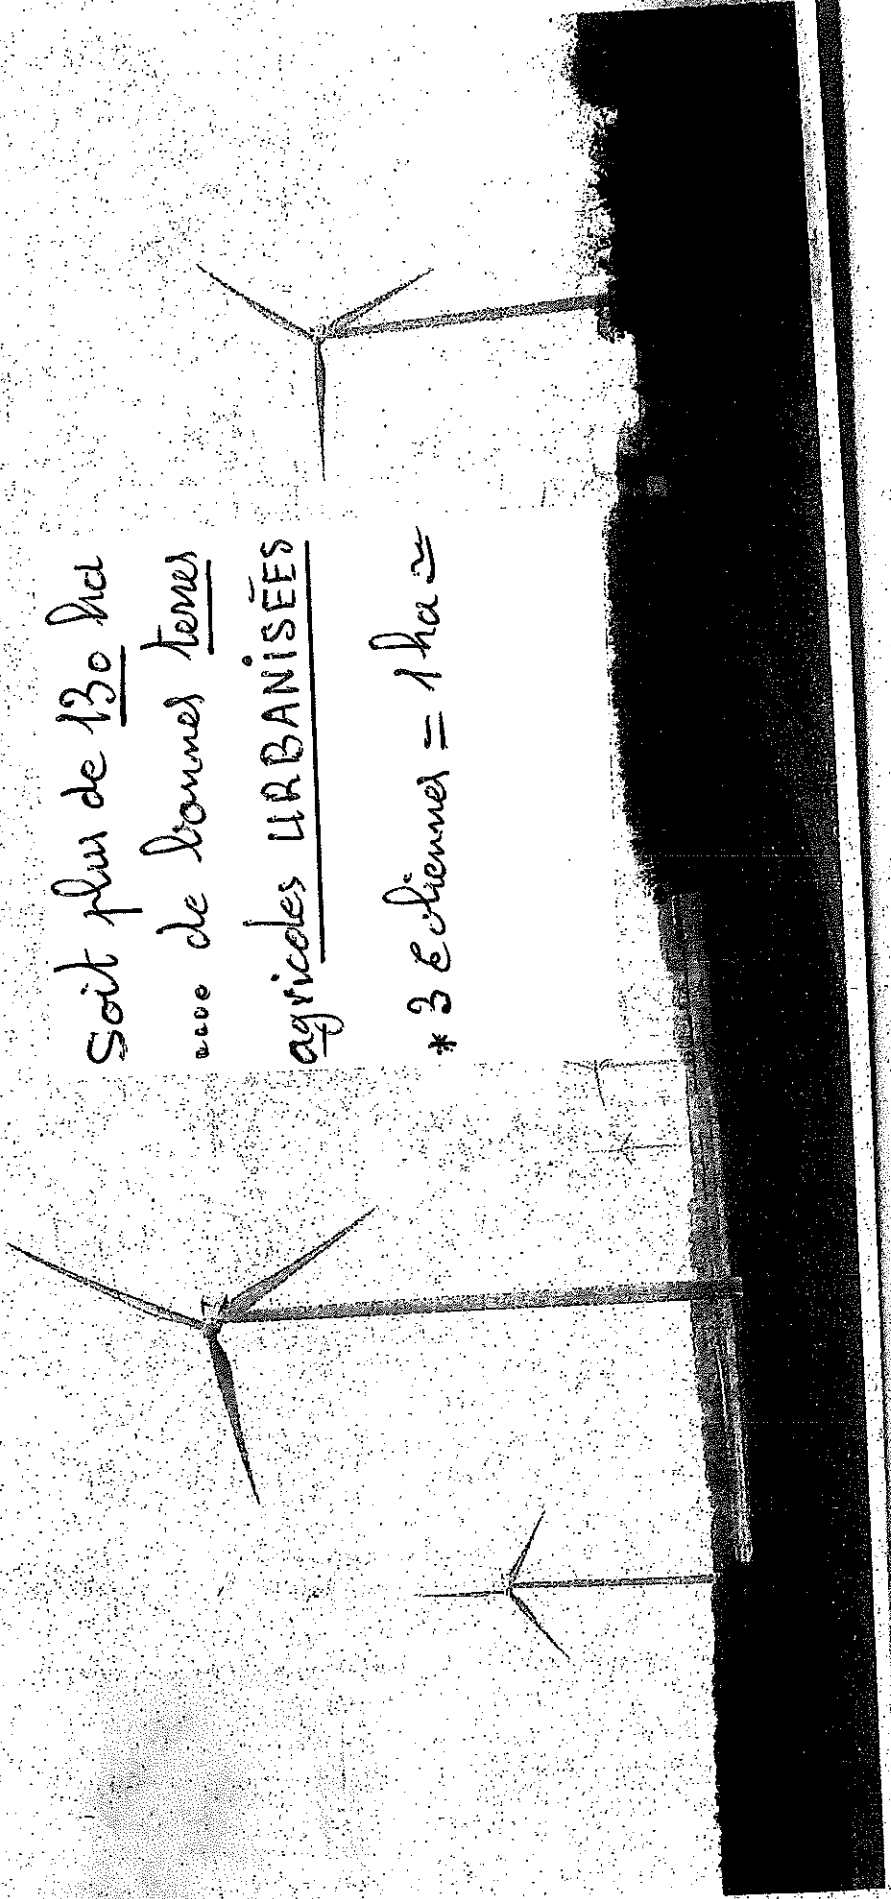 Soit plus de 130 ha
.... de bonnes terres
agricoles URBANISÉES
* 3 Eoliennes = 1 ha ≃